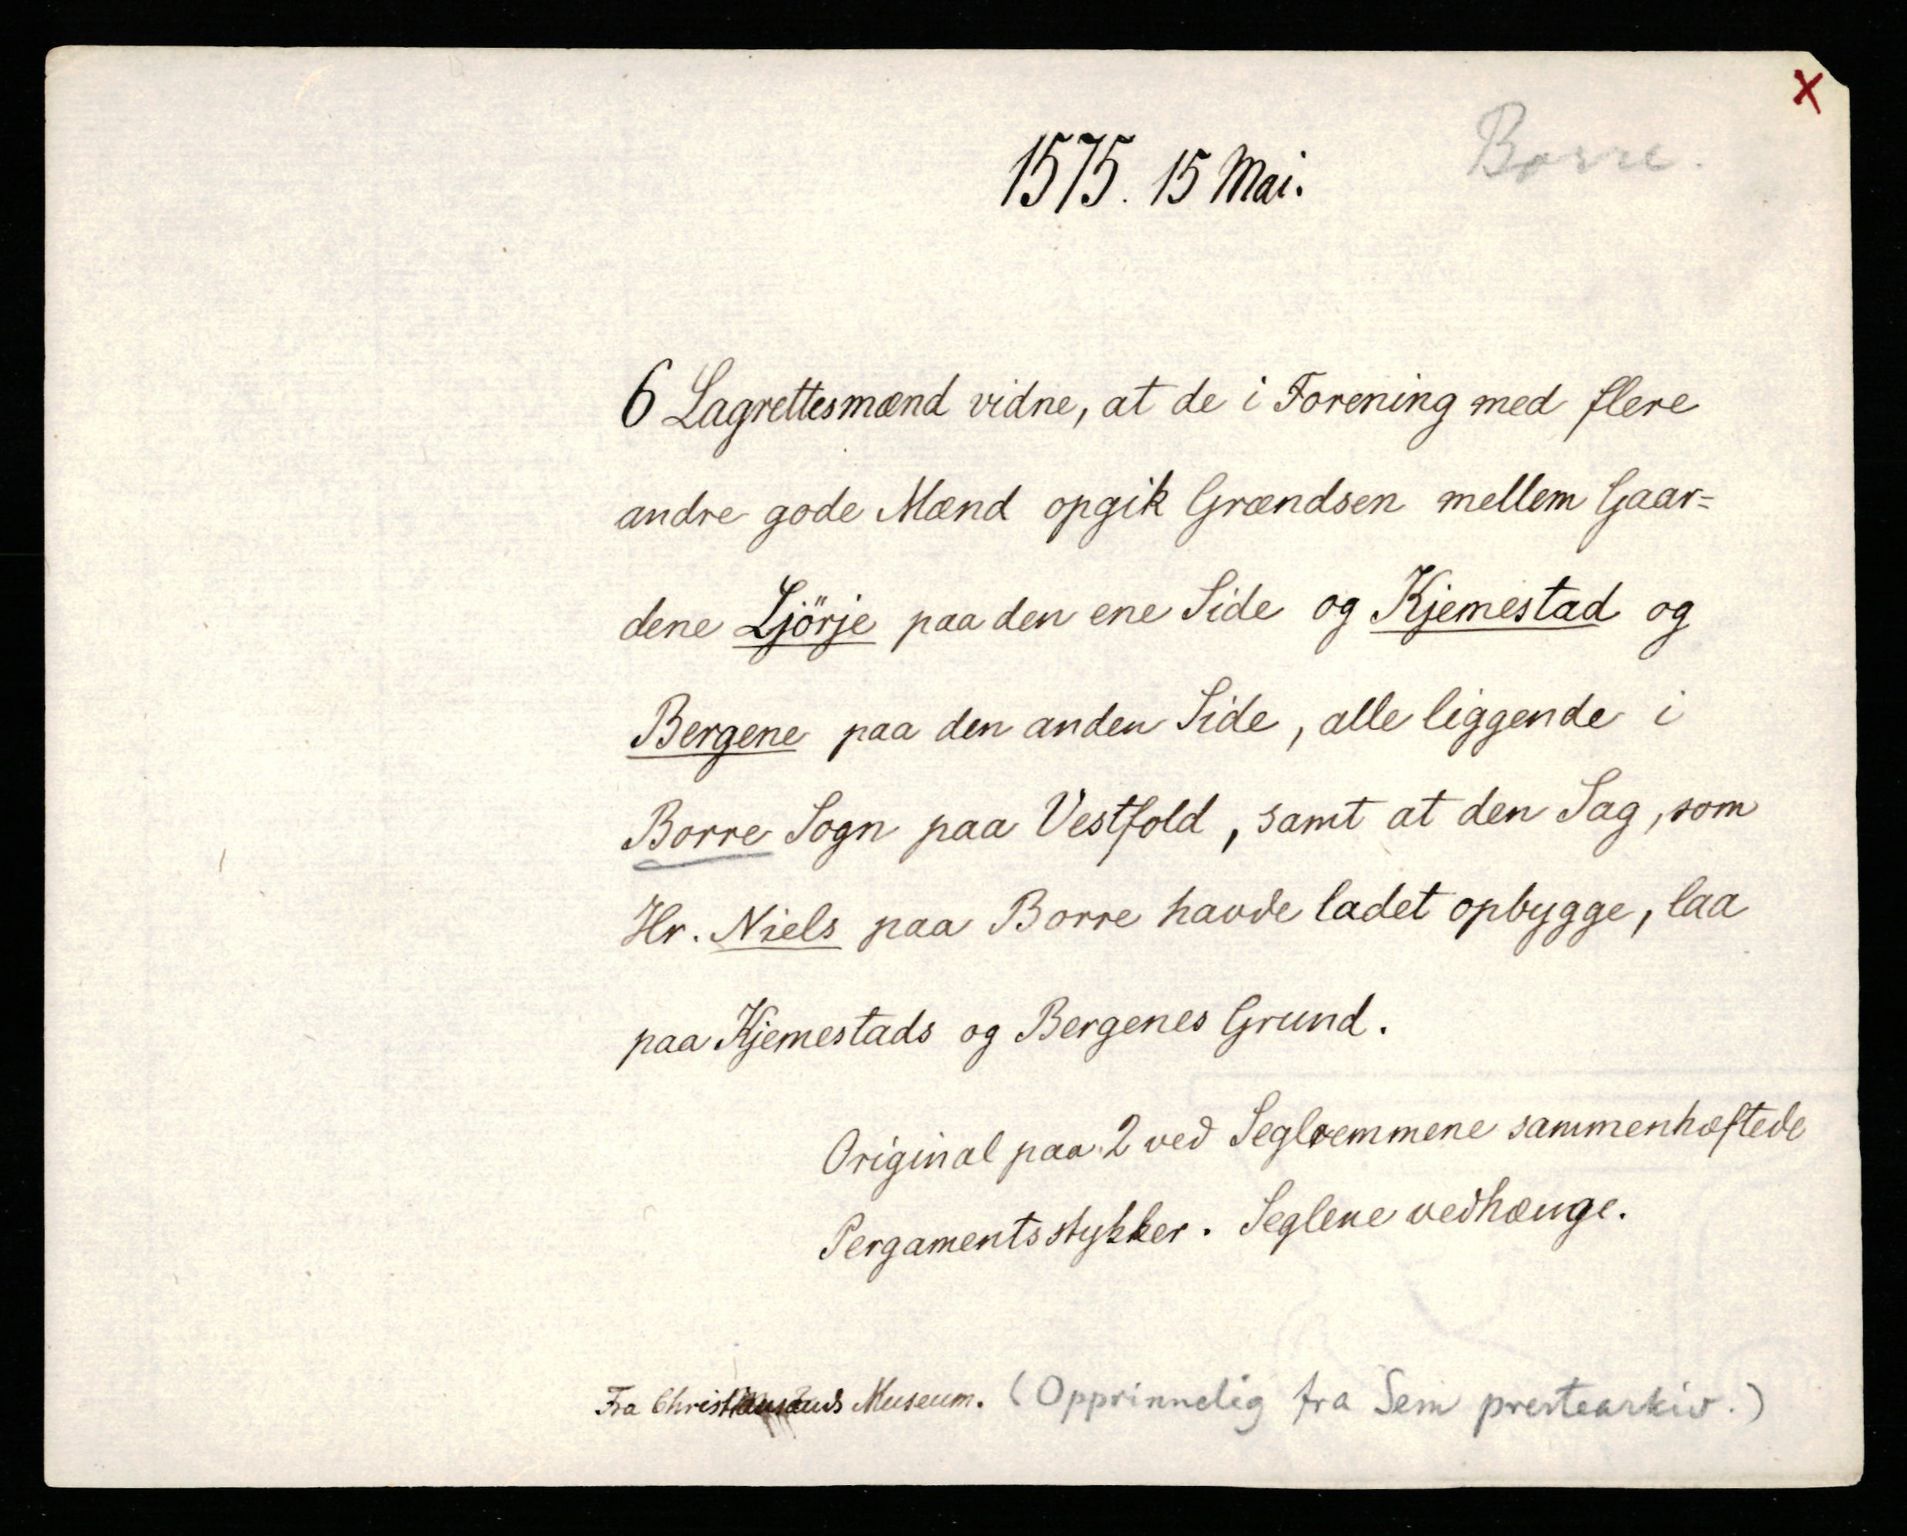 x
Borre.
1575. 15 Mai.
6 Lagrettesmænd vidne, at de i Forening med flere
andre gode Mænd opgik Grændsen mellem Gaar=
dene Ljörje paa den ene Side og Kjemestad og
Bergene paa den anden Side, alle liggende i
Borre Sogn paa Vestfold, samt at den Sag, som
Hr. Niels paa Borre havde ladet opbygge, laa
paa Kjemestads og Bergenes Grund.
Original paa 2 ved Seglremmene sammenhæftede
Pergamentsstykker. Seglene vedhænge.
Fra Christiansands Museum. (Opprinnelig fra Sem prestearkiv.)